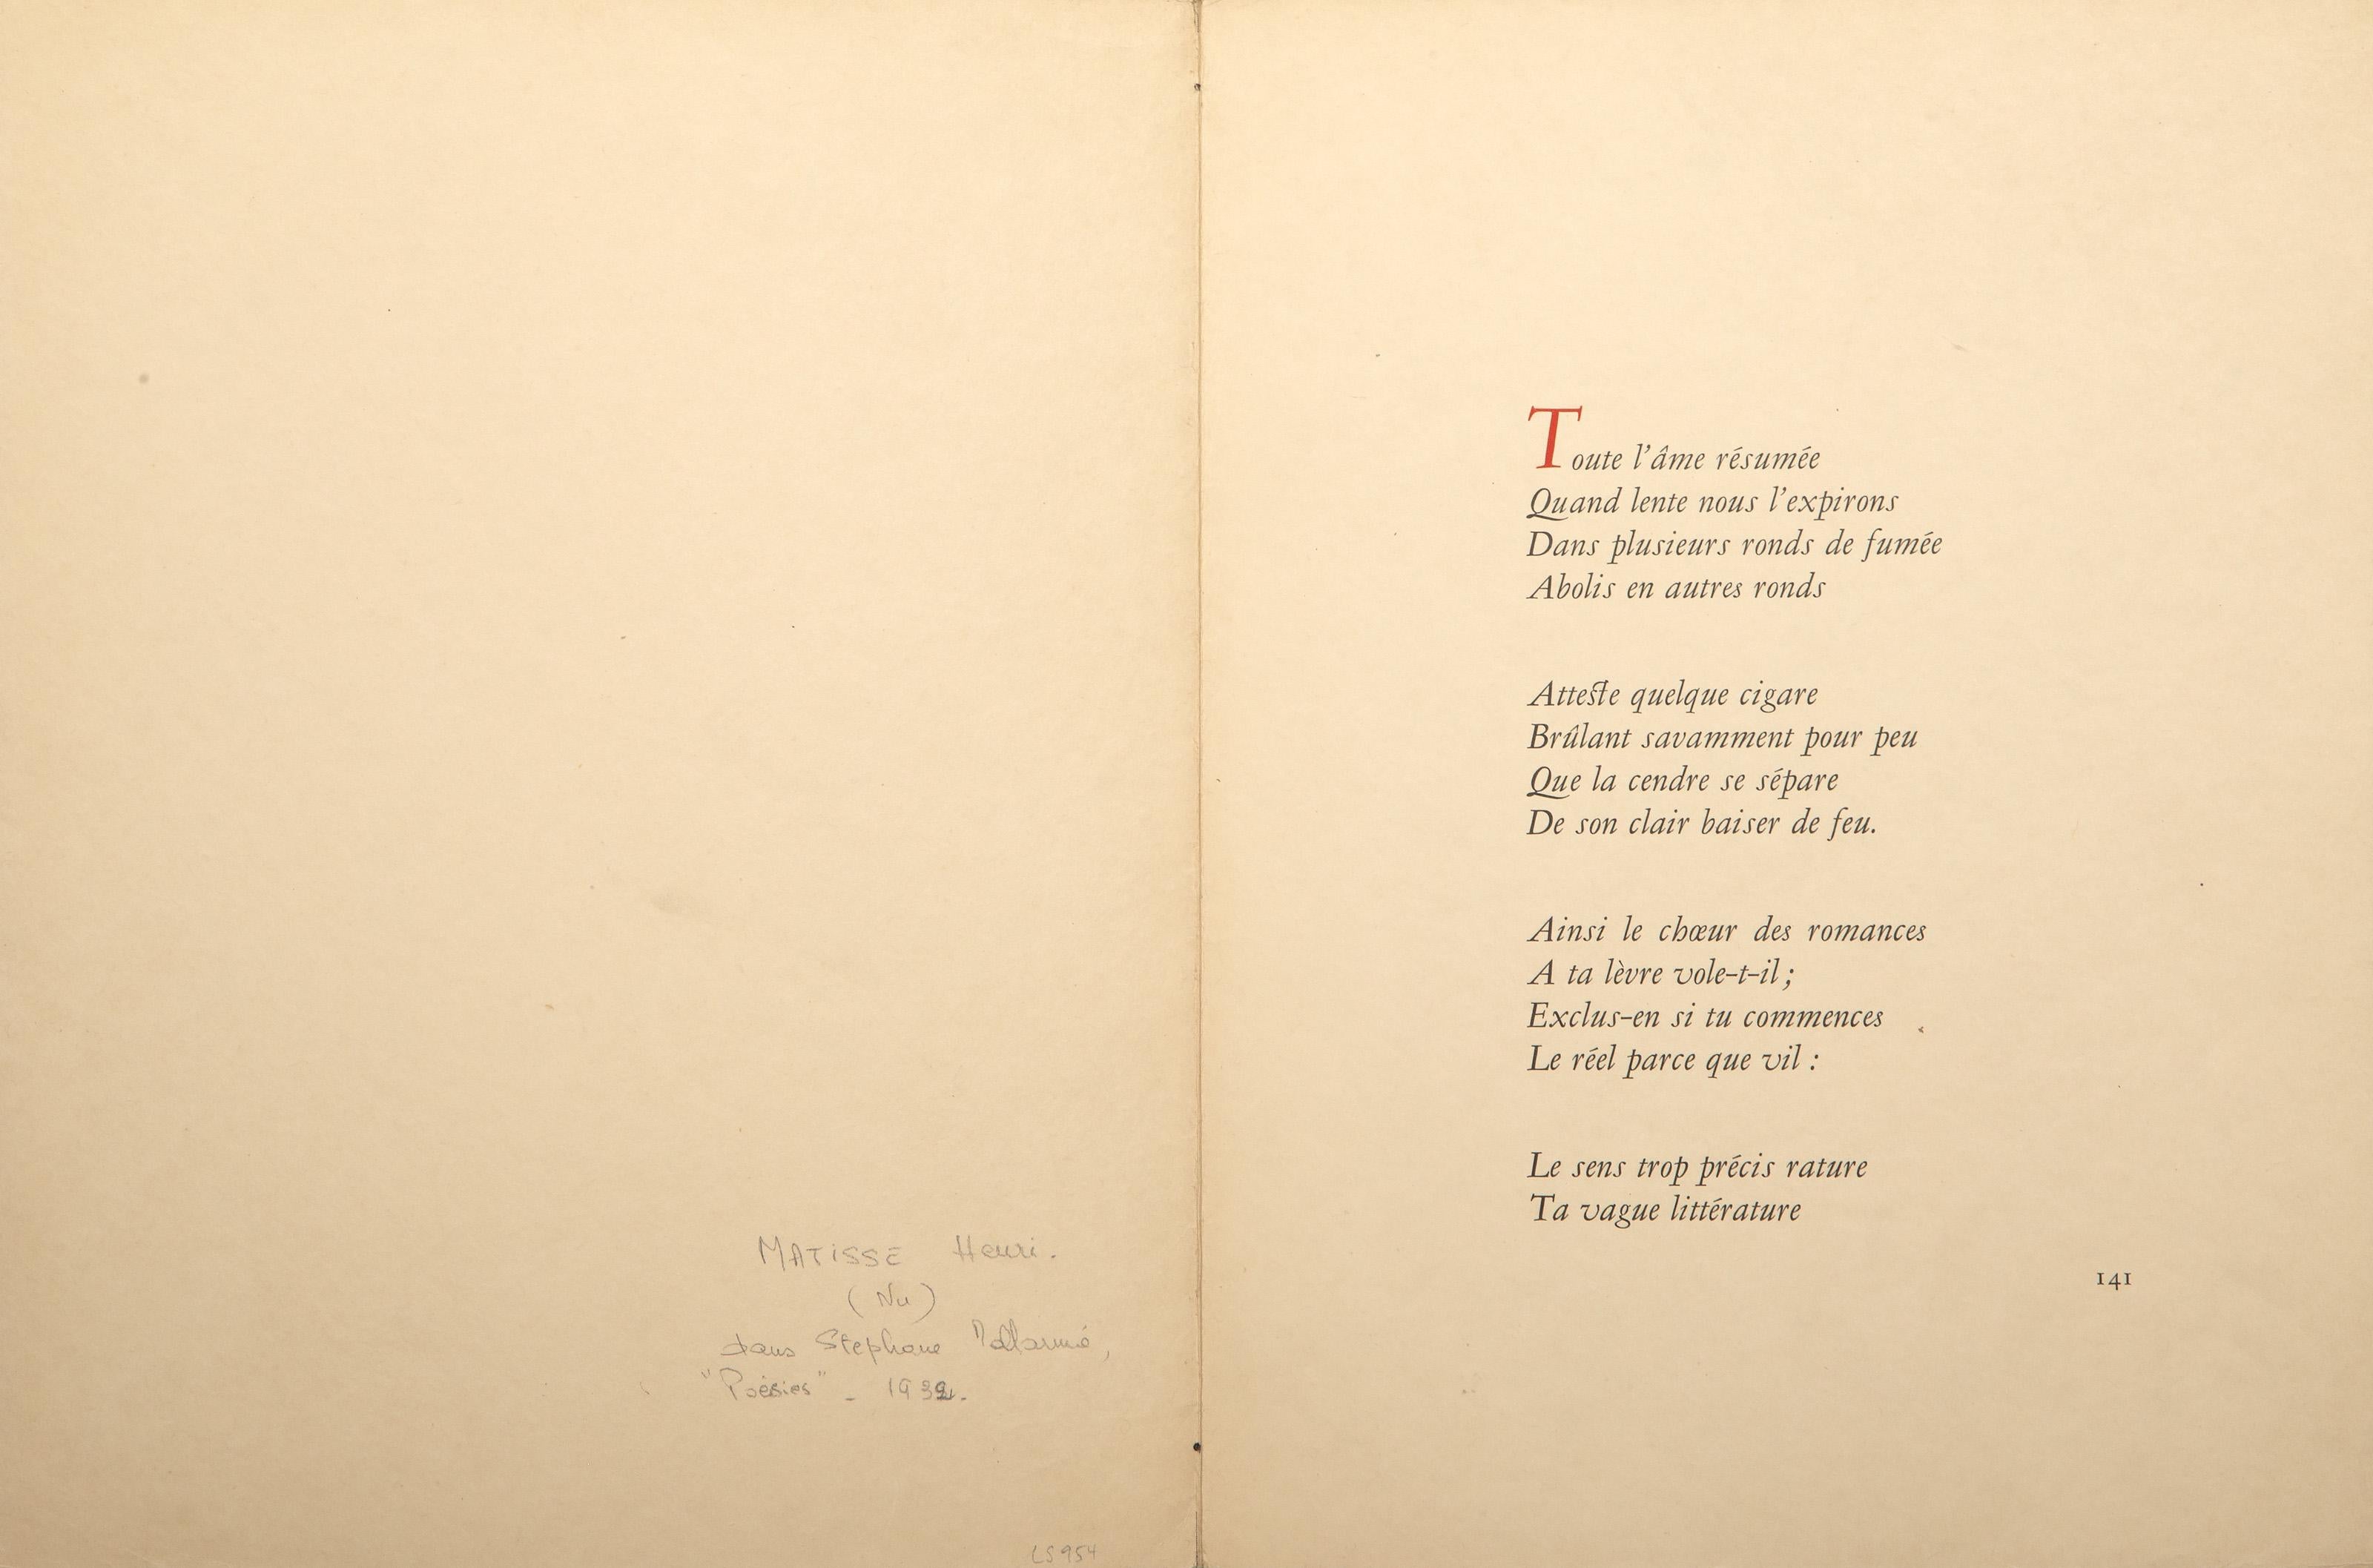 MATISSE Henri.
(Nu)
dans Stephane Mallarmé,
"Poésies" - 1932.
LS954
Toute l'âme résumée
Quand lente nous l'expirons
Dans plusieurs ronds de fumée
Abolis en autres ronds
Atteste quelque cigare
Brûlant savamment pour peu
Que la cendre se sépare
De son clair baiser de feu.
Ainsi le chœur des romances
A ta lèvre vole-t-il ;
Exclus-en si tu commences
Le réel parce que vil :
Le sens trop précis rature
Ta vague littérature
141